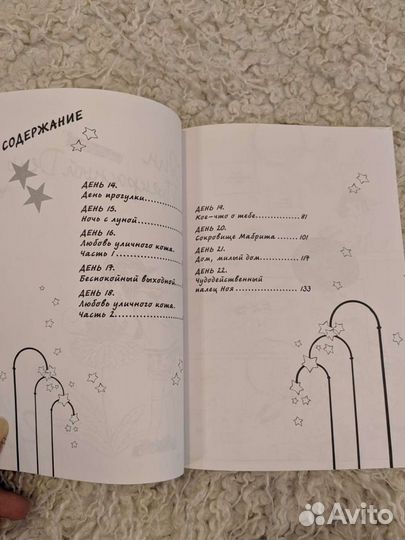 СОДЕРЖАНИЕ
ДЕНЬ 14.
День прогулки..............
ДЕНЬ 15.
Ночь с луной..............
ДЕНЬ 16.
Любовь уличного кота.
Часть 1..............
ДЕНЬ 17.
Беспокойный выходной..............
ДЕНЬ 18.
Любовь уличного кота.
Часть 2..............
ДЕНЬ 19.
Кое-что о тебе.............. 81
ДЕНЬ 20.
Сокровище Мабрита ....... 101
ДЕНЬ 21.
Дом, милый дом.............. 117
ДЕНЬ 22.
Чудодейственный
палец Ноя .............. 133
Avito